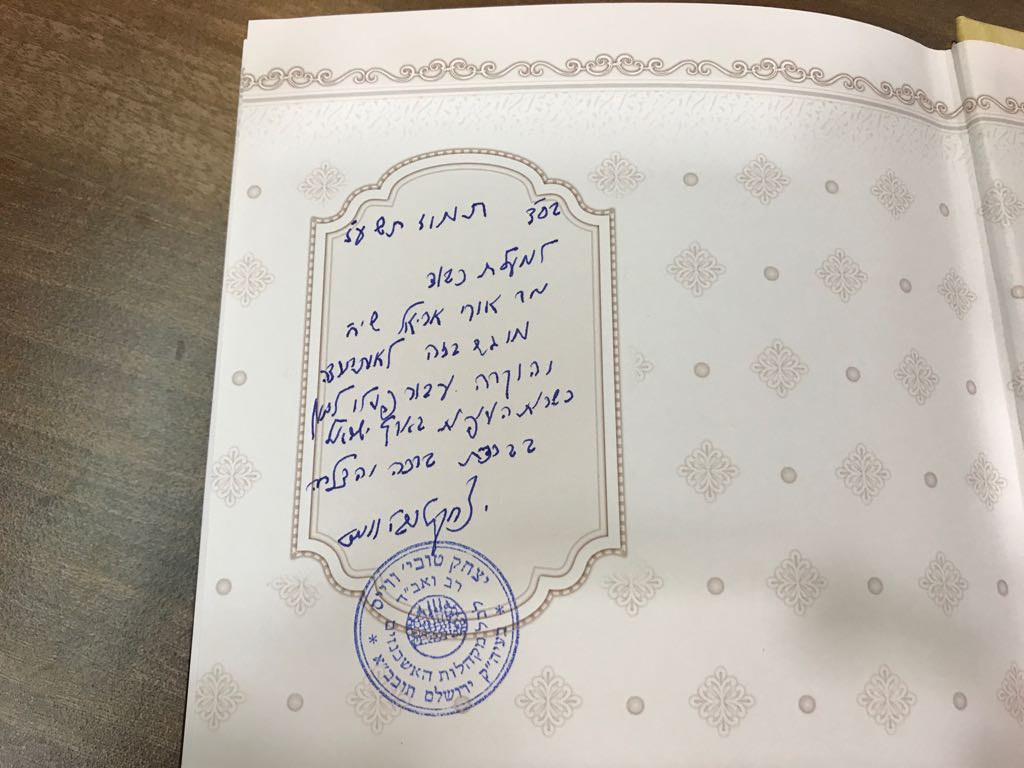 בס"ד תמוז תשע"ז
למעלת כבוד
מר אורי אריאל שי'ח
מוגש בזה לאות הערכה
והוקרה עבור פעלו למען
כשרות העופות בארץ ישראל
בברכת ברכה והצלחה
יצחק טובי' ווייס
יצחק טובי' ווייס
רב ואב"ד
לכל מקהלות האשכנזים
בעיה"ק ירושלם תובב"א